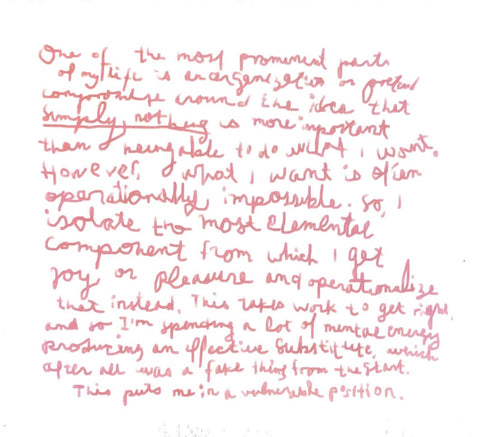 One of the most prominent parts
of my life is an organization or pretend
compromise around the idea that
simply, nothing is more important
than being able to do what I want.
However, what I want is often
operationally impossible. So, I
isolate the most elemental
component from which I get
joy or pleasure and operationalize
that instead. This takes work to get right,
and so I'm spending a lot of mental energy
producing an effective substitute, which
after all was a fake thing from the start.
This puts me in a vulnerable position.